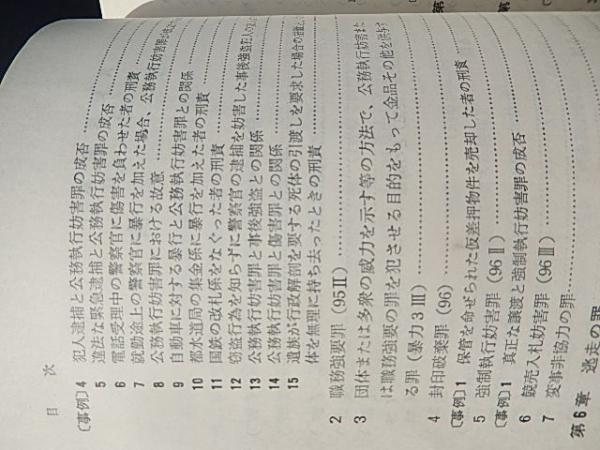 目次
〔事例〕4 犯人逮捕と公務執行妨害罪の成否
5 違法な緊急逮捕と公務執行妨害罪の成否
6 電話受理中の警察官に傷害を負わせた者の刑責
7 就勤途上の警察官に暴行を加えた場合、公務執行妨害罪
8 公務執行妨害罪における故意
9 自動車に対する暴行と公務執行妨害罪との関係
10 都水道局の集金係に暴行を加えた者の刑責
11 国鉄の改札係をなぐった者の刑責
12 窃盗行為を知らずに警察官の逮捕を妨害した事後強盗
13 公務執行妨害罪と事後強盗との関係
14 公務執行妨害罪と傷害罪との関係
15 遺族が行政解剖を要する死体の引渡しを要求した場合の
体を無理に持ち去ったときの刑責
2 職務強要罪(95Ⅱ)
3 団体または多衆の威力を示す等の方法で、公務執行妨害また
は職務強要の罪を犯させる目的をもって金品その他を供与す
る罪(暴力3Ⅲ)
4 封印破棄罪(96)
〔事例〕1 保管を命ぜられた仮差押物件を売却した者の刑責
5 強制執行妨害罪(96Ⅱ)
〔事例〕1 真正な譲渡と強制執行妨害罪の成否
6 競売入札妨害罪(96Ⅲ)
7 変事非協力の罪
第6章 逃走の罪